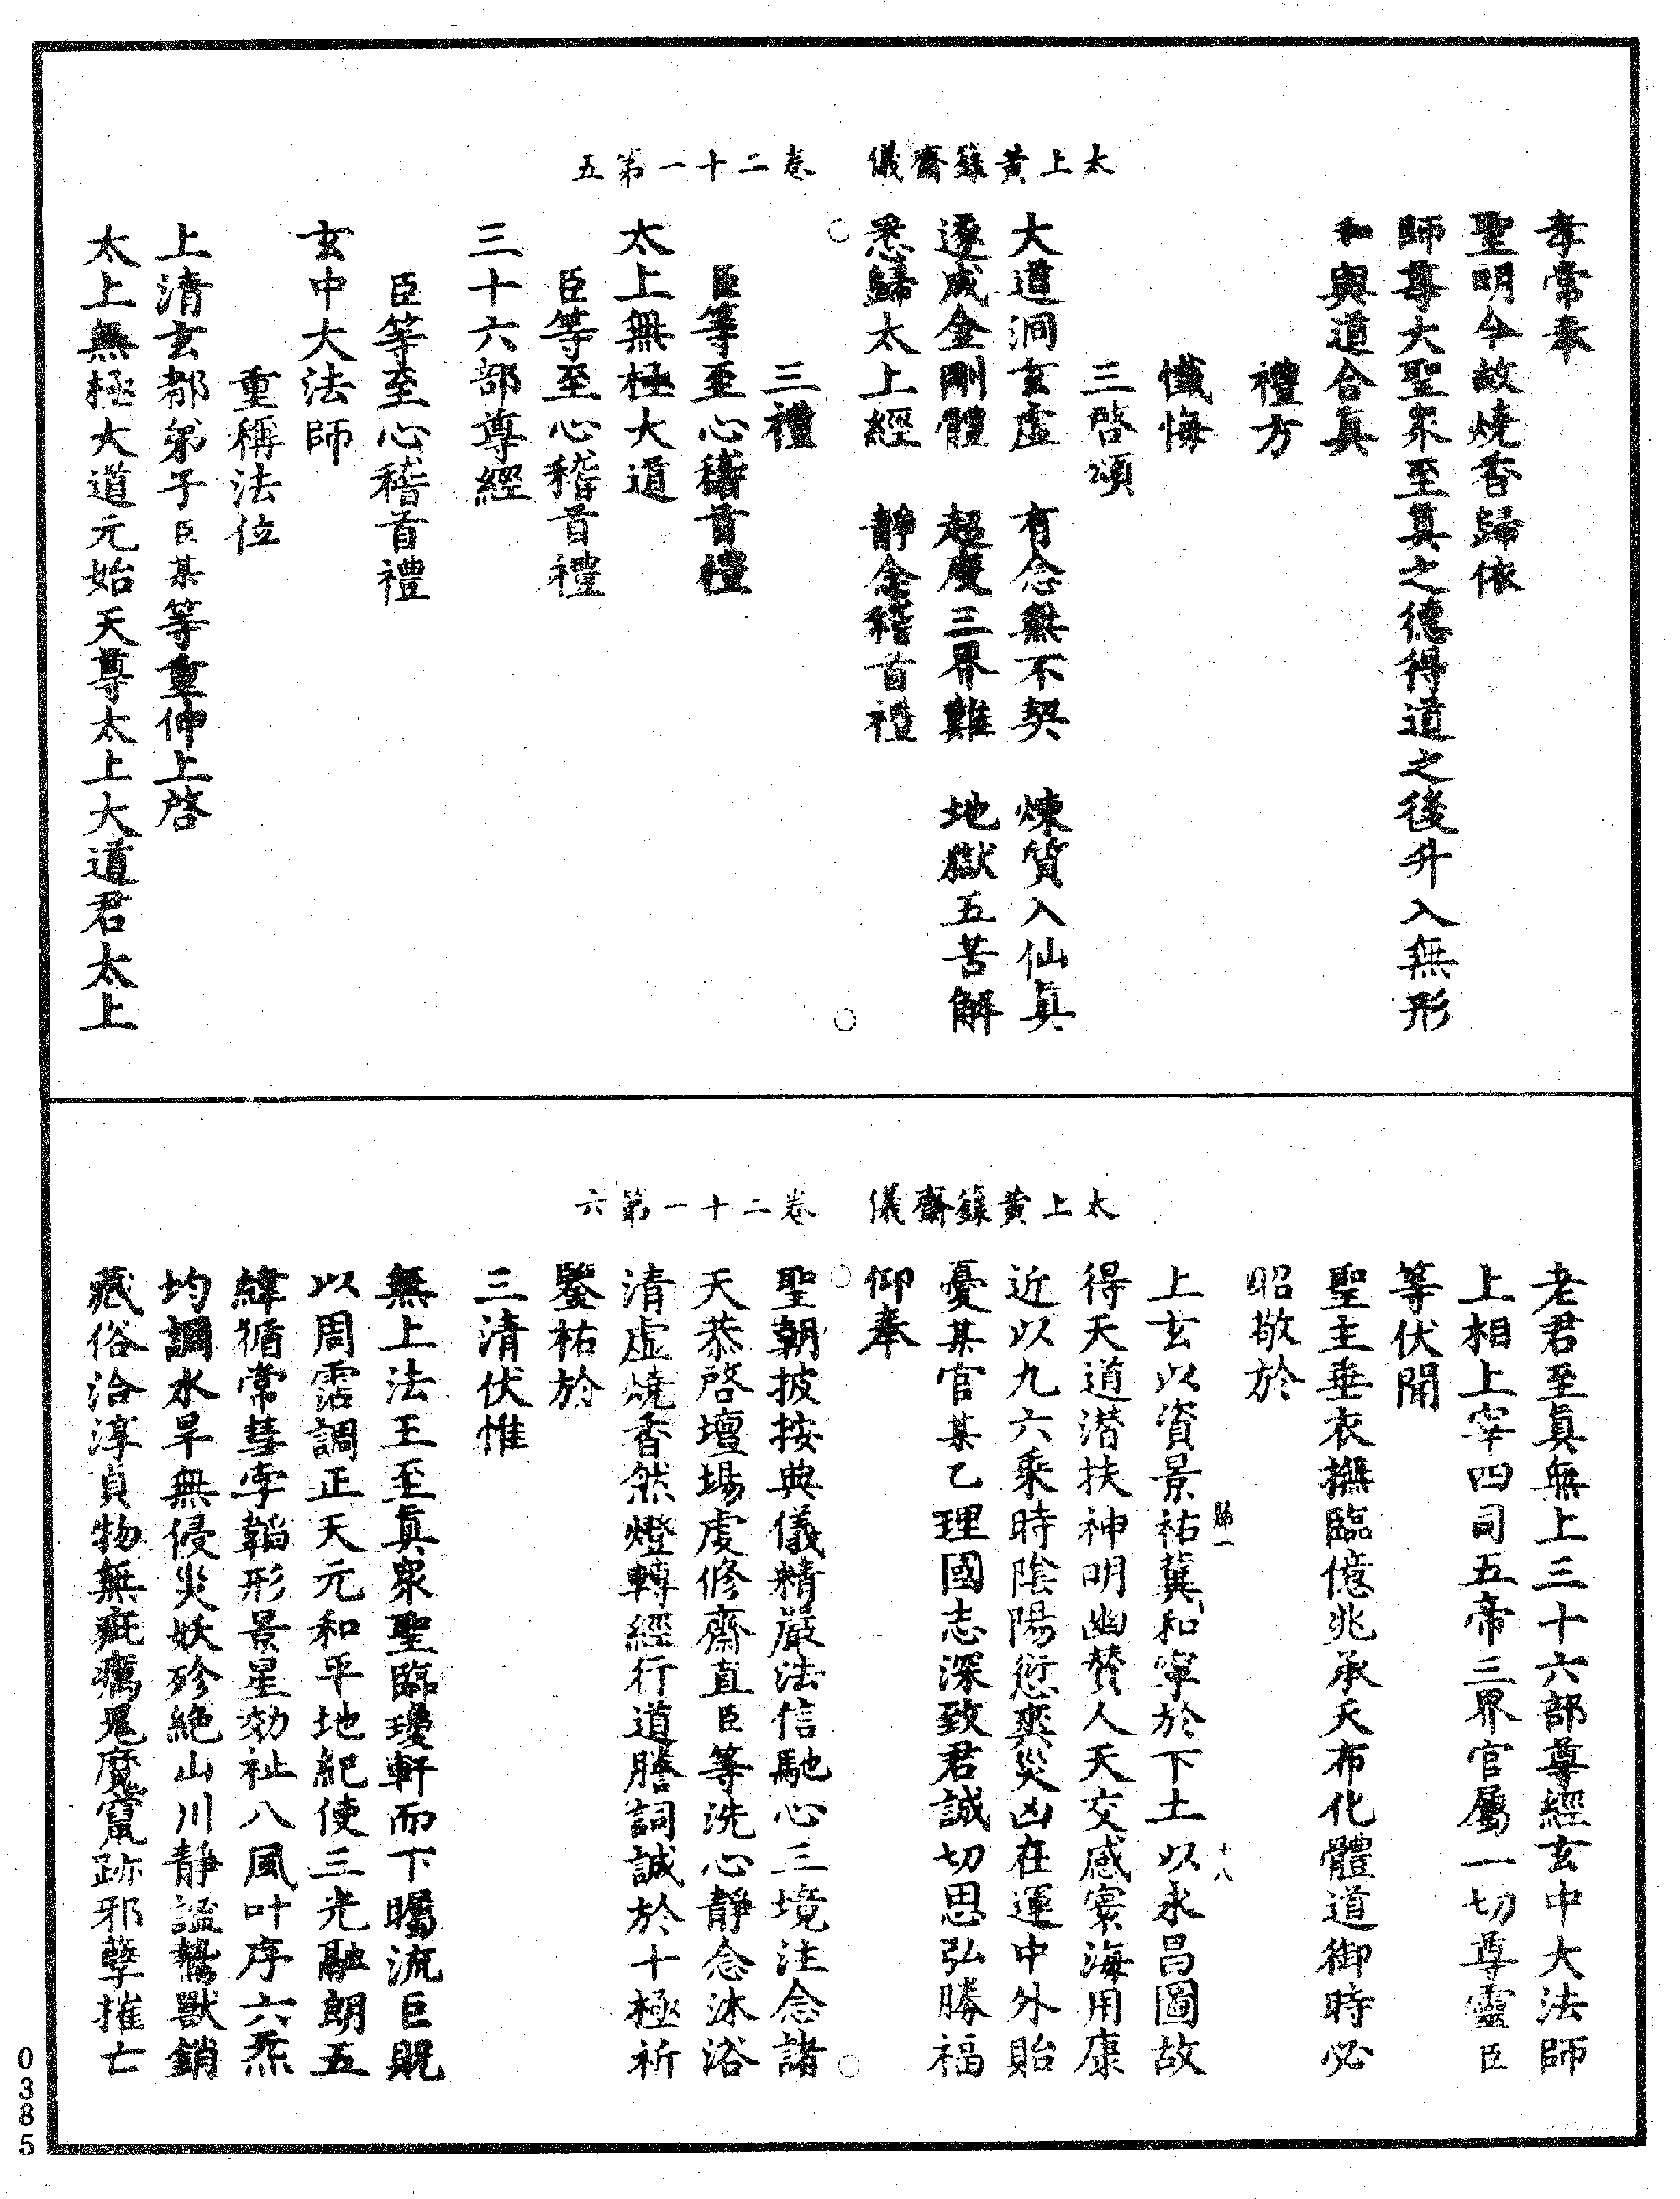 太上黃籙齋儀　卷二十一第五
孝常奉
聖明今故燒香歸依
師尊大聖衆至真之德得道之後升入無形
與道合真
禮方
懺悔
三啓頌
大道洞玄虛　有念無不契　煉質入仙真
遂成金剛體　超度三界難　地獄五苦解
悉歸太上經　靜念稽首禮
三禮
臣等至心稽首禮
太上無極大道
臣等至心稽首禮
三十六部尊經
臣等至心稽首禮
玄中大法師
重稱法位
上清玄都弟子臣某等重伸上啓
太上無極大道元始天尊太上大道君太上
太上黃籙齋儀　卷二十一第六
老君至真無上三十六部尊經玄中大法師
上相上宰四司五帝三界官屬一切尊靈臣
等伏聞
聖主垂衣撫臨億兆承天布化體道御時必
昭敬於
上玄以資景祐冀和寧於下土以永昌圖故
得天道潛扶神明幽贊人天交感寰海用康
近以九六乘時陰陽愆爽災凶在運中外貽
憂某官某乙理國志深致君誠切思弘勝福
仰奉
聖朝披按典儀精嚴法信馳心三境注念諸
天恭啓壇場虔修齋直臣等洗心靜念沐浴
清虛燒香然燈轉經行道謄詞誠於十極祈
鑒祐於
三清伏惟
無上法王至真衆聖臨瓊軒而下矚流巨貺
以周霑調正天元和平地紀使三光融朗五
緯循常彗孛韜形景星効祉八風叶序六炁
均調水旱無侵災妖殄絶山川靜謐鷙獸銷
藏俗洽淳貞物無疵癘鬼魔竄跡邪孽摧亡
十八
0385